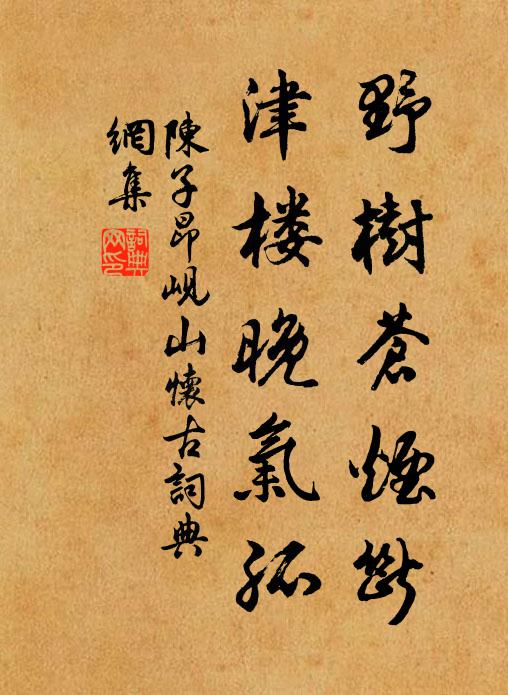 野樹蒼煙斷
津楼晚氣孤
陳子昂峴山懷古詞典
網集
詞典
网印